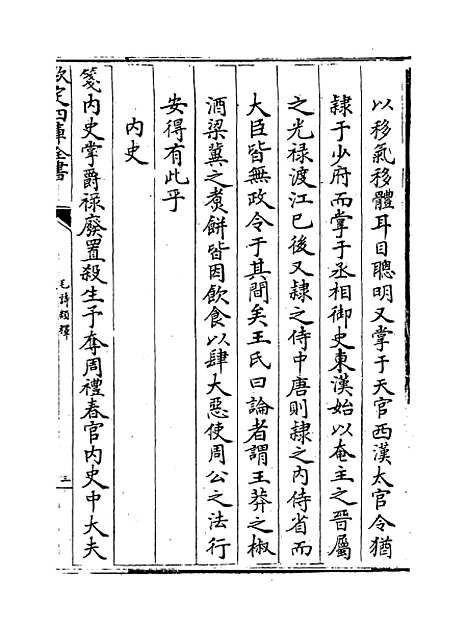 以移氣移體耳目聰明又掌于天官西漢太官令猶
隸于少府而掌于丞相御史東漢始以奄主之晉屬
之光禄渡江已後又隸之侍中唐則隸之内侍省而
大臣皆無政令于其間矣王氏曰論者謂王莽之椒
酒梁冀之煑餅皆因飲食以肆大惡使周公之法行
安得有此乎
内史
箋内史掌爵禄廢置殺生予奪周禮春官内史中大夫
欽定四庫全書
毛詩類釋
三